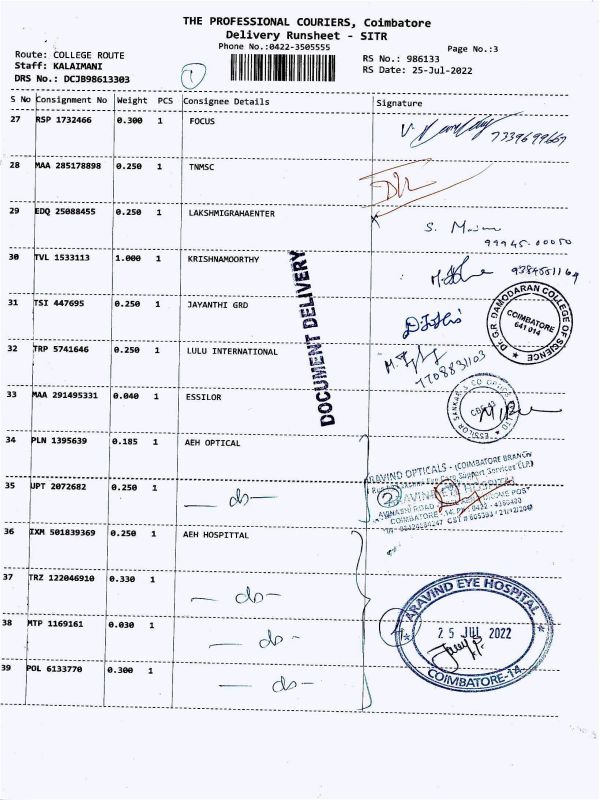 THE PROFESSIONAL COURIERS, Coimbatore
Delivery Runsheet - SITR
Phone No.:0422-3505555
Page No.:3
Route: COLLEGE ROUTE
Staff: KALAIMANI
DRS No.: DCJB98613303
1
RS No.: 986133
RS Date: 25-Jul-2022
S No Consignment No Weight PCS Consignee Details Signature
27 RSP 1732466 0.300 1 FOCUS
7339699667
28 MAA 285178898 0.250 1 TNMSC
29 EDQ 25088455 0.250 1 LAKSHMIGRAHAENTER
99945-00050
30 TVL 1533113 1.000 1 KRISHNAMOORTHY
31 TSI 447695 0.250 1 JAYANTHI GRD
Dr.G.R. DAMODARAN COLLEGE OF SCIENCE
COIMBATORE
641 014
DOCUMENT DELIVERY
32 TRP 5741646 0.250 1 LULU INTERNATIONAL
7708831103
33 MAA 291495331 0.040 1 ESSILOR
34 PLN 1395639 0.185 1 AEH OPTICAL
ARAVIND OPTICALS - (COIMBATORE BRANCH
35 UPT 2072682 0.250 1 — do —
2
ARAVIND EYE HOSPITAL
AVINASHI ROAD
COIMBATORE - 14.
36 IXM 501839369 0.250 1 AEH HOSPITTAL
37 TRZ 122046910 0.330 1 — do —
38 MTP 1169161 0.030 1 — do —
39 POL 6133770 0.300 1 — do —
ARAVIND EYE HOSPITAL
25 JUL 2022
COIMBATORE-14.